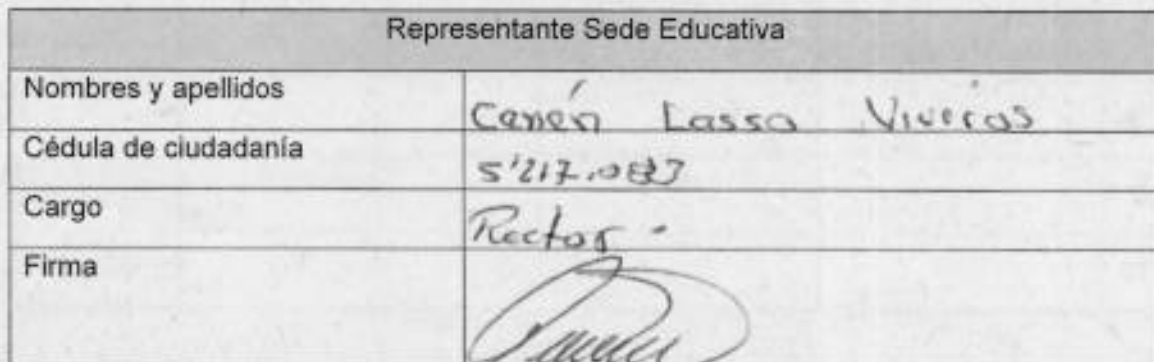 Representante Sede Educativa
Nombres y apellidos Canén Lasso Viveros
Cédula de ciudadanía 5'217.083
Cargo Rector
Firma